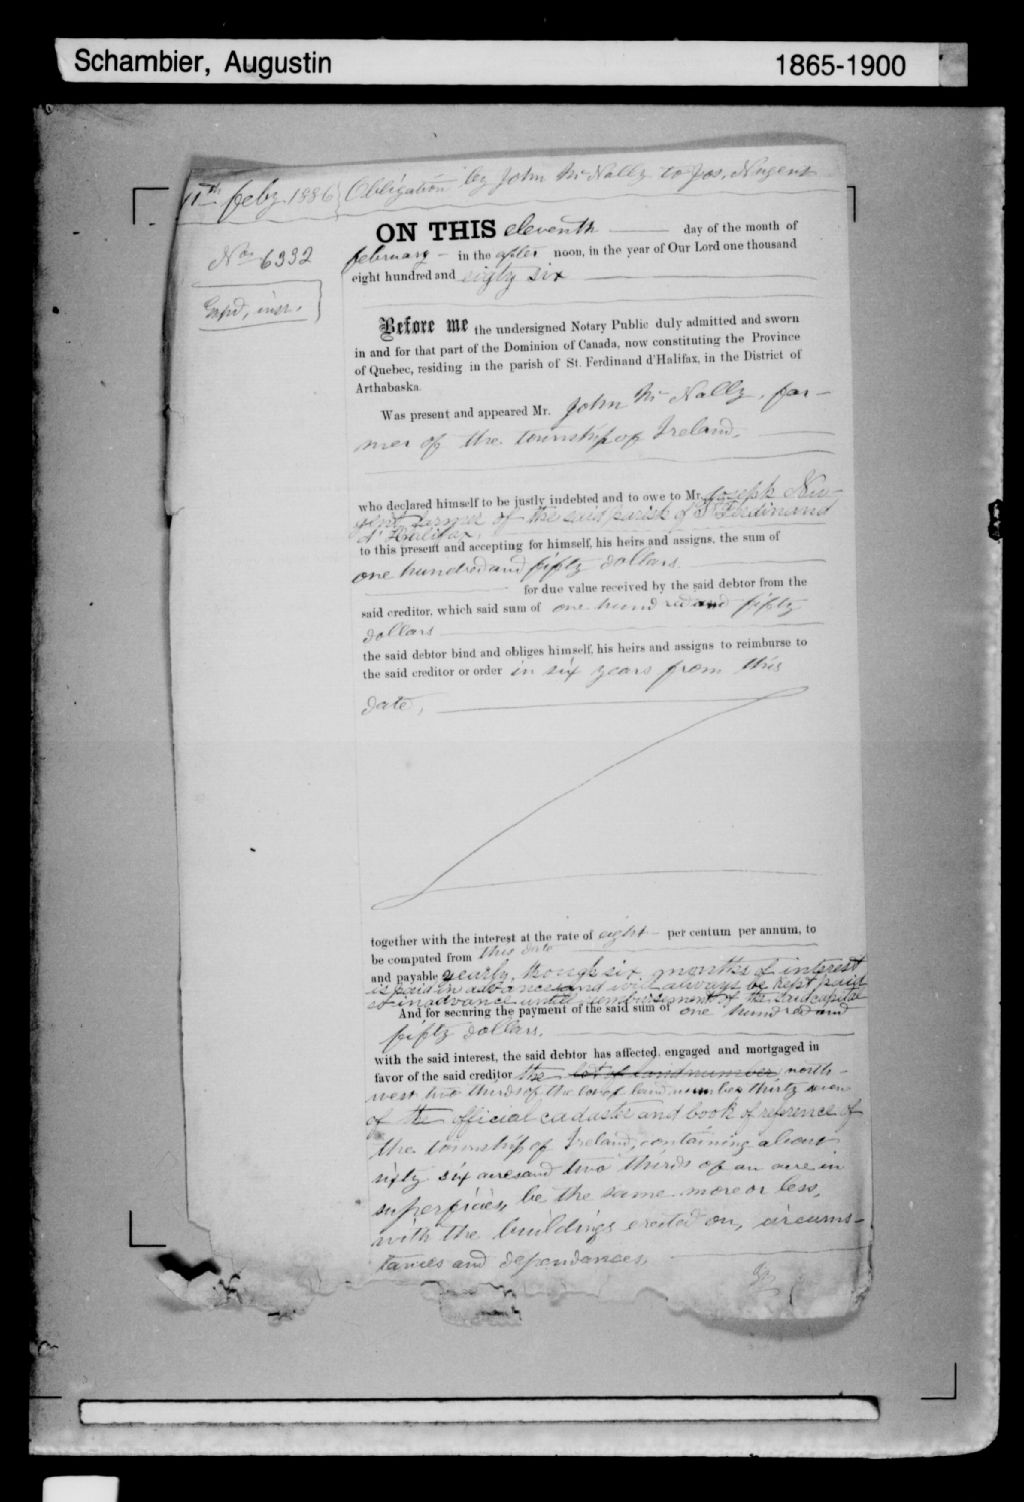 Schambier, Augustin 1865-1900
11th feby 1886 Obligation by John McNally to Jos. Nugent
No 6332
ON THIS eleventh day of the month of
february - in the after noon, in the year of Our Lord one thousand
eight hundred and eighty six
Before me the undersigned Notary Public duly admitted and sworn
in and for that part of the Dominion of Canada, now constituting the Province
of Quebec, residing in the parish of St. Ferdinand d'Halifax, in the District of
Arthabaska.
Was present and appeared Mr. John McNally, far-
mer of the township of Ireland.
who declared himself to be justly indebted and to owe to Mr. Joseph Nu-
gent farmer of the said parish of St Ferdinand
d'Halifax,
to this present and accepting for himself, his heirs and assigns, the sum of
one hundred and fifty dollars
for due value received by the said debtor from the
said creditor, which said sum of one hundred and fifty
dollars
the said debtor bind and obliges himself, his heirs and assigns to reimburse to
the said creditor or order in six years from this
date,
together with the interest at the rate of eight - per centum per annum, to
be computed from this date
and payable yearly, though six months of interest
is paid in advance and will always be kept paid
in advance until reimbursement of the said capital
And for securing the payment of the said sum of one hundred and
fifty dollars,
with the said interest, the said debtor has affected, engaged and mortgaged in
favor of the said creditor the lot of land number north-
west two thirds of the lot of land number thirty seven
of the official cadaster and book of reference of
the township of Ireland, containing about
sixty six acres and two thirds of an acre in
superficies, be the same more or less,
with the buildings erected on, circums-
tances and dependances.